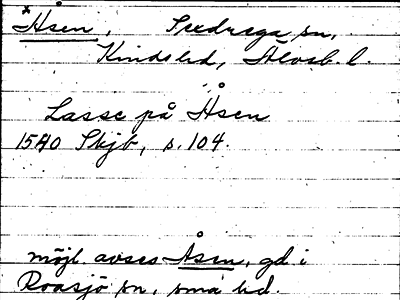 Åsen, Sexdrega sn,
Kinds hd, Älvsb. l.
Lasse på Åsen
1540 Skjb, s. 104.
möjl. avses Åsen, gd i
Roasjö sn, sma hd.